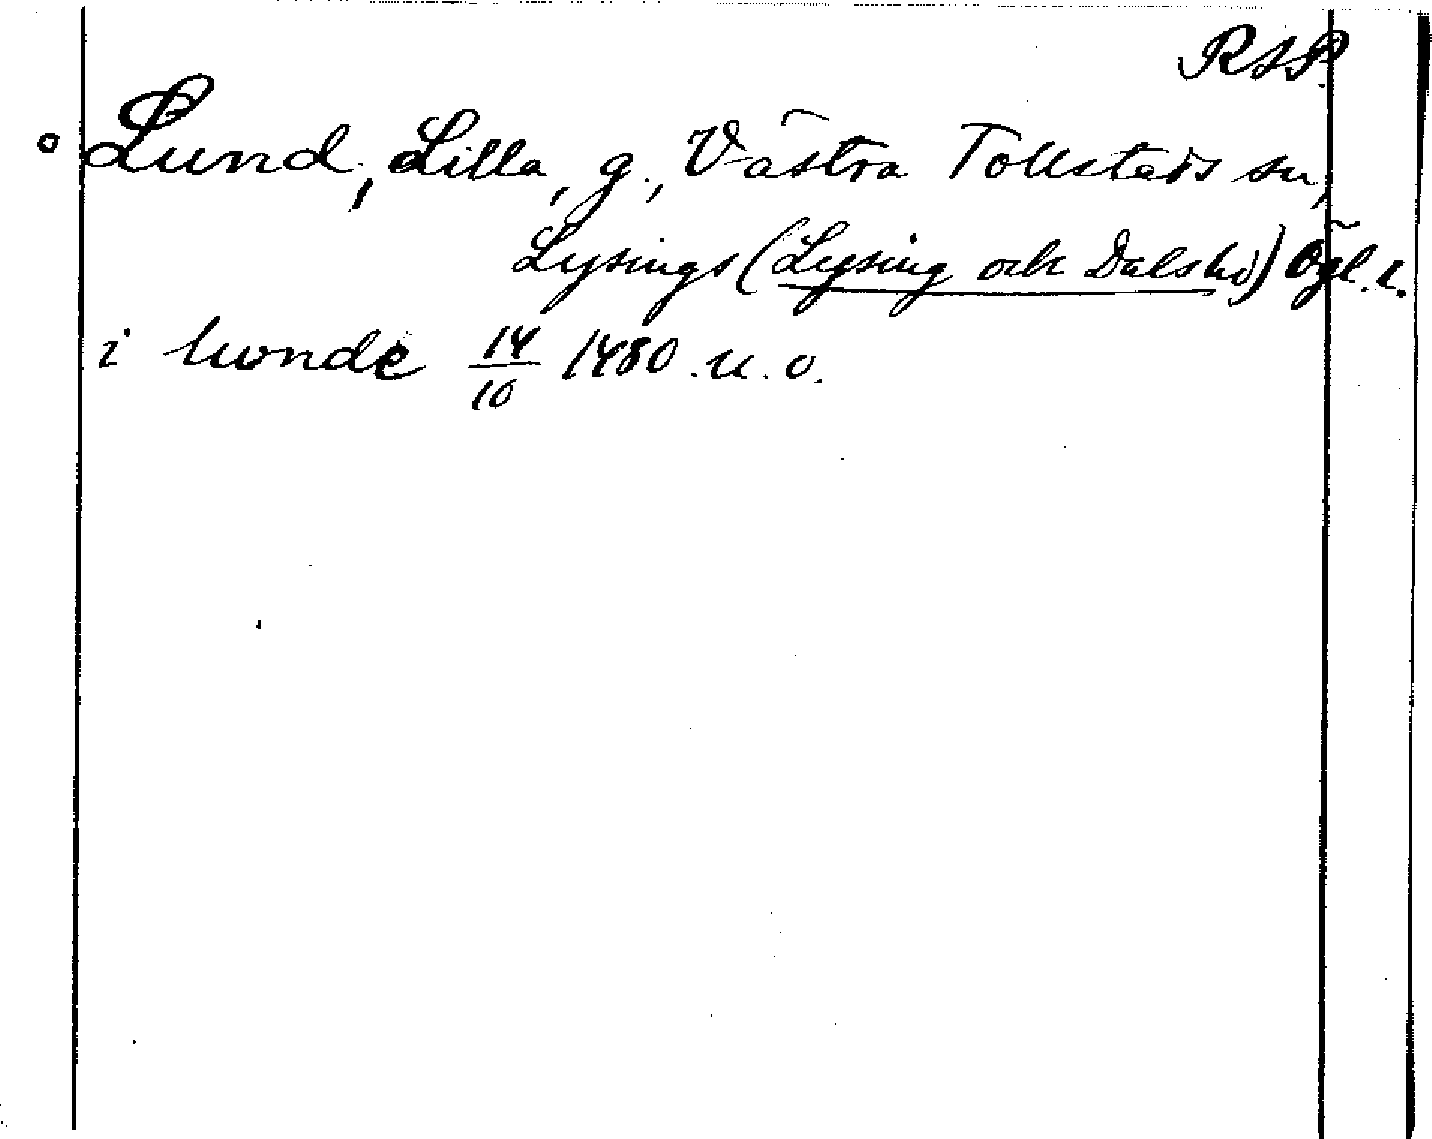 RAP.
Lund, Lilla, g., Västra Tollstads sn,
Lysings (Lysing och Dals hd) Ögl. l.
i londe 14/10 1480 u. o.